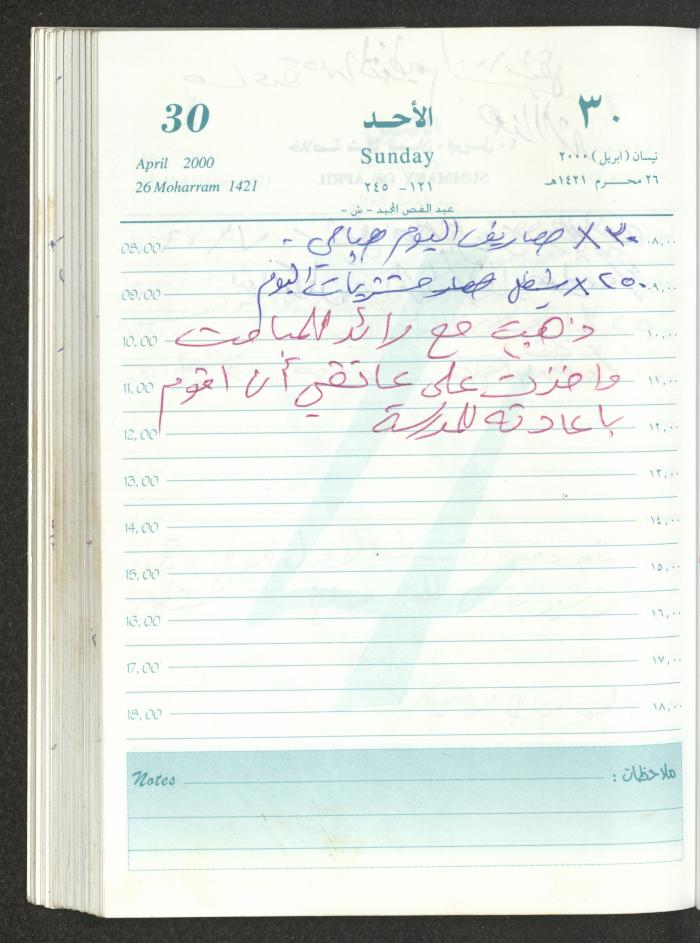 30
الأحد
٣٠
April 2000
Sunday
نيسان (ابريل) ٢٠٠٠
26 Moharram 1421
١٢١ - ٢٤٥
٢٦ محرم ١٤٢١هـ
عيد الفصح المجيد - ش -
08.00
٣٠ X مصاريف اليوم صباحي .
٠٨,٠٠
09.00
٢٥٠ X مشتريات اليوم
٠٩,٠٠
10.00
ذهبت مع رائد للمباحث
١٠,٠٠
11.00
واخذت على عاتقي أن اقوم
١١,٠٠
12.00
باعادته للمدرسة
١٢,٠٠
13.00
١٣,٠٠
14.00
١٤,٠٠
15.00
١٥,٠٠
16.00
١٦,٠٠
17.00
١٧,٠٠
18.00
١٨,٠٠
Notes
ملاحظات :